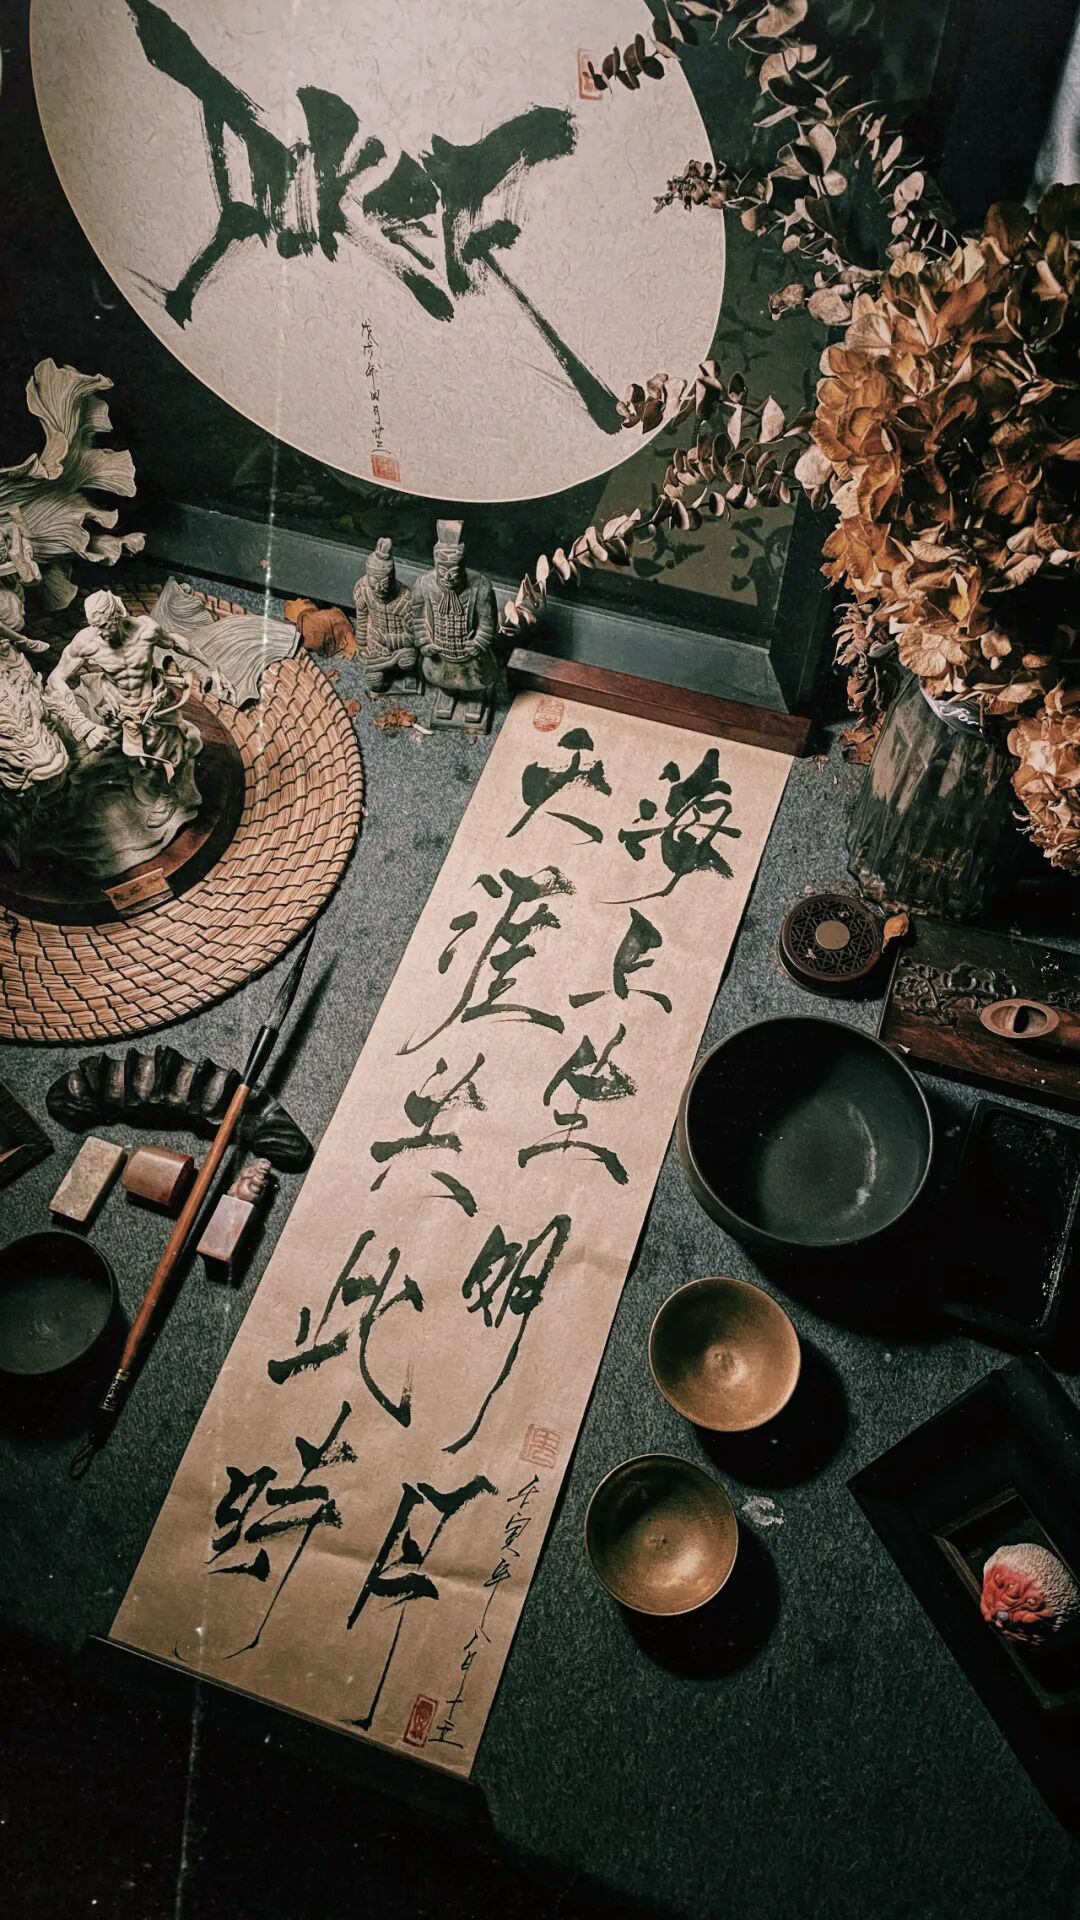 戊戌年四月廿三
海上生明月
天涯共此時
壬寅年八月十五